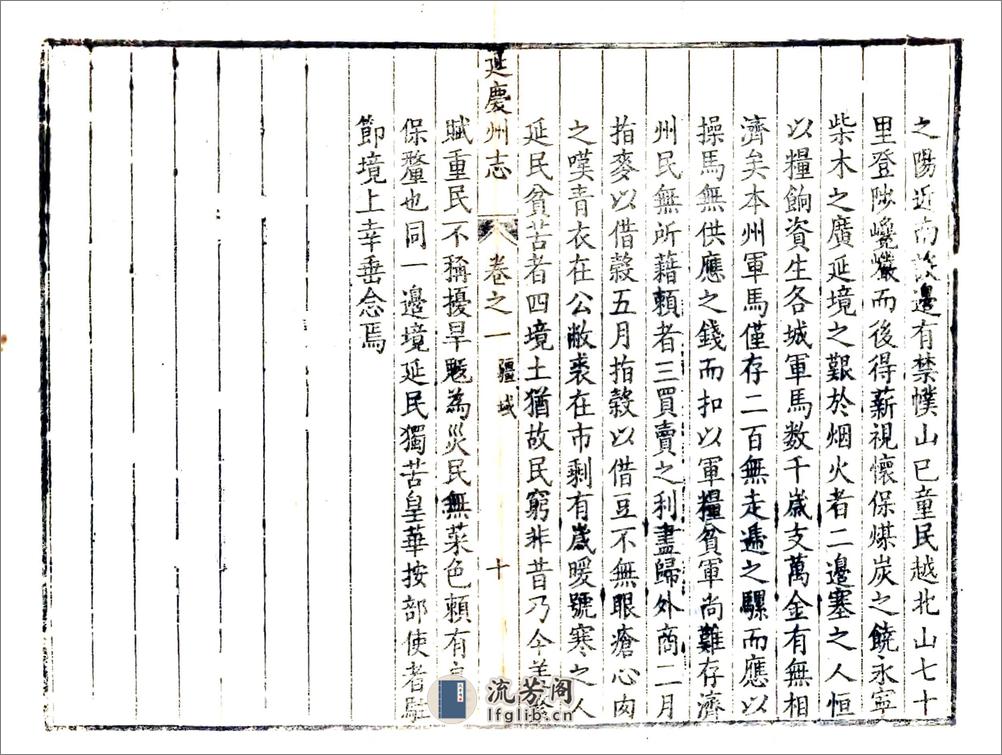 之陽近南故邊有禁幞山已童民越北山七十
里登陟巉巖而後得薪視懷保煤炭之饒永寧
柴木之廣延境之艱於烟火者二邊塞之人恒
以糧餉資生各城軍馬数千歲支萬金有無相
濟矣本州軍馬僅存二百無走遞之騾而應以
操馬無供應之錢而扣以軍糧貧軍尚難存濟
州民無所藉賴者三買賣之利盡歸外商二月
指麥以借穀五月指穀以借豆不無眼瘡心肉
之嘆青衣在公敝裘在市剩有歲暖號寒之人
延民貧苦者四境土猶故民窮非昔乃今
延慶州志 卷之一 疆域 十
賦重民不稱擾旱魃為災民無菜色賴有
保釐也同一邊境延民獨苦皇華按部使者駐
節境上幸垂念焉
流芳阁
lfglib.cn